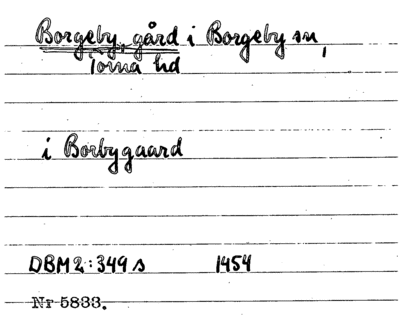 Borgeby, gård i Borgeby sn,
Torna hd
i Borbygaard
DBM 2:349 s 1454
Nr 5833.